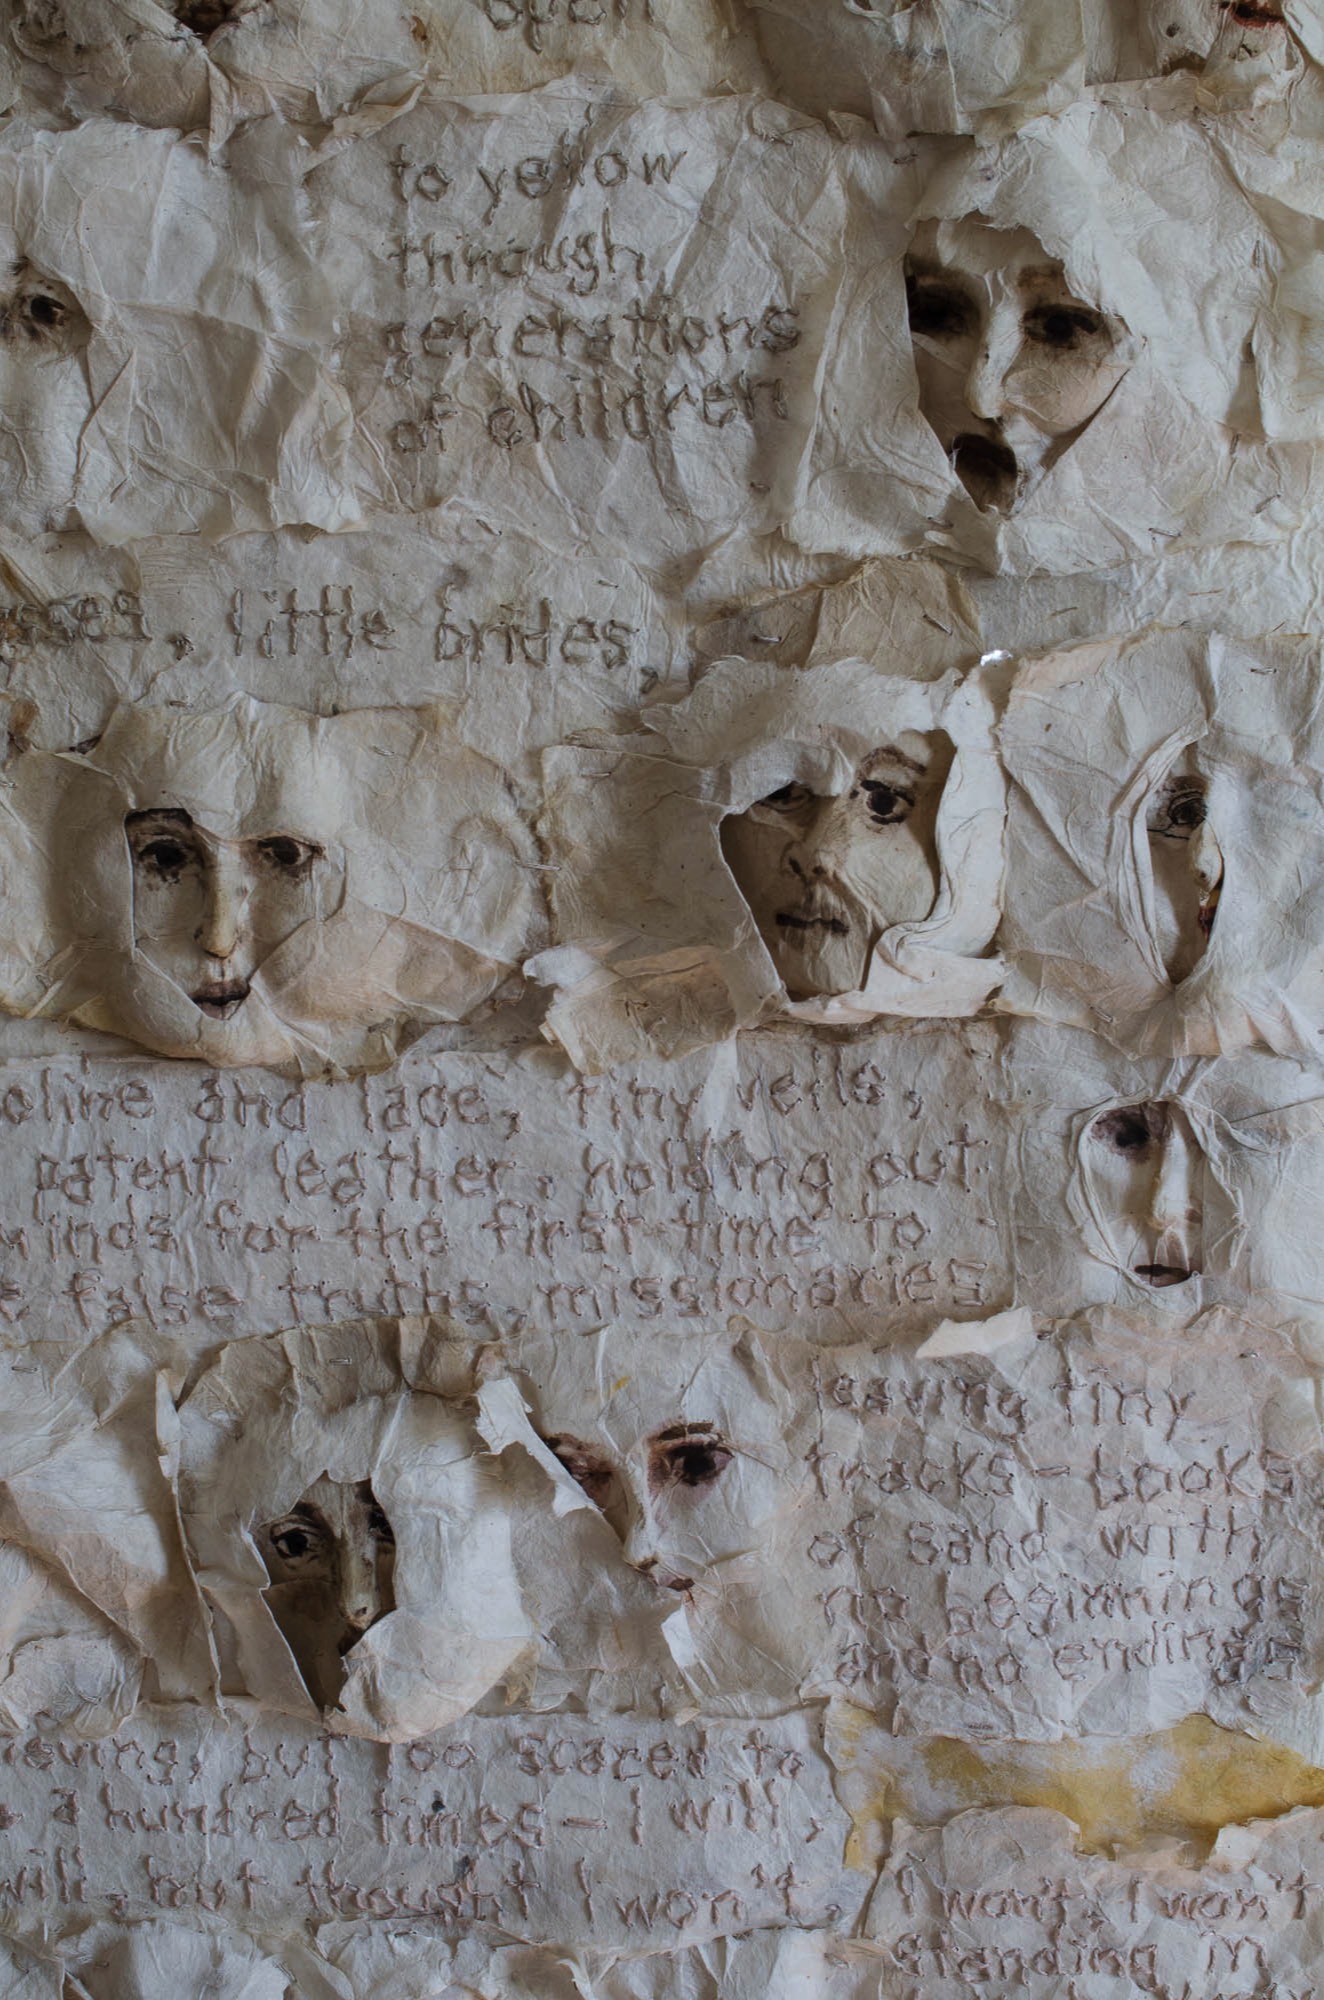 to yellow
through
generations
of children
sses, little brides,
oline and lace, tiny veils,
patent leather, holding out
minds for the first time to
e false truths, missionaries
leaving tiny
tracks - books
of sand with
no beginnings
and no endings
ieving, but too scared to
a hundred times - I will,
will, but thought I won't,
I won't, I won't
standing in